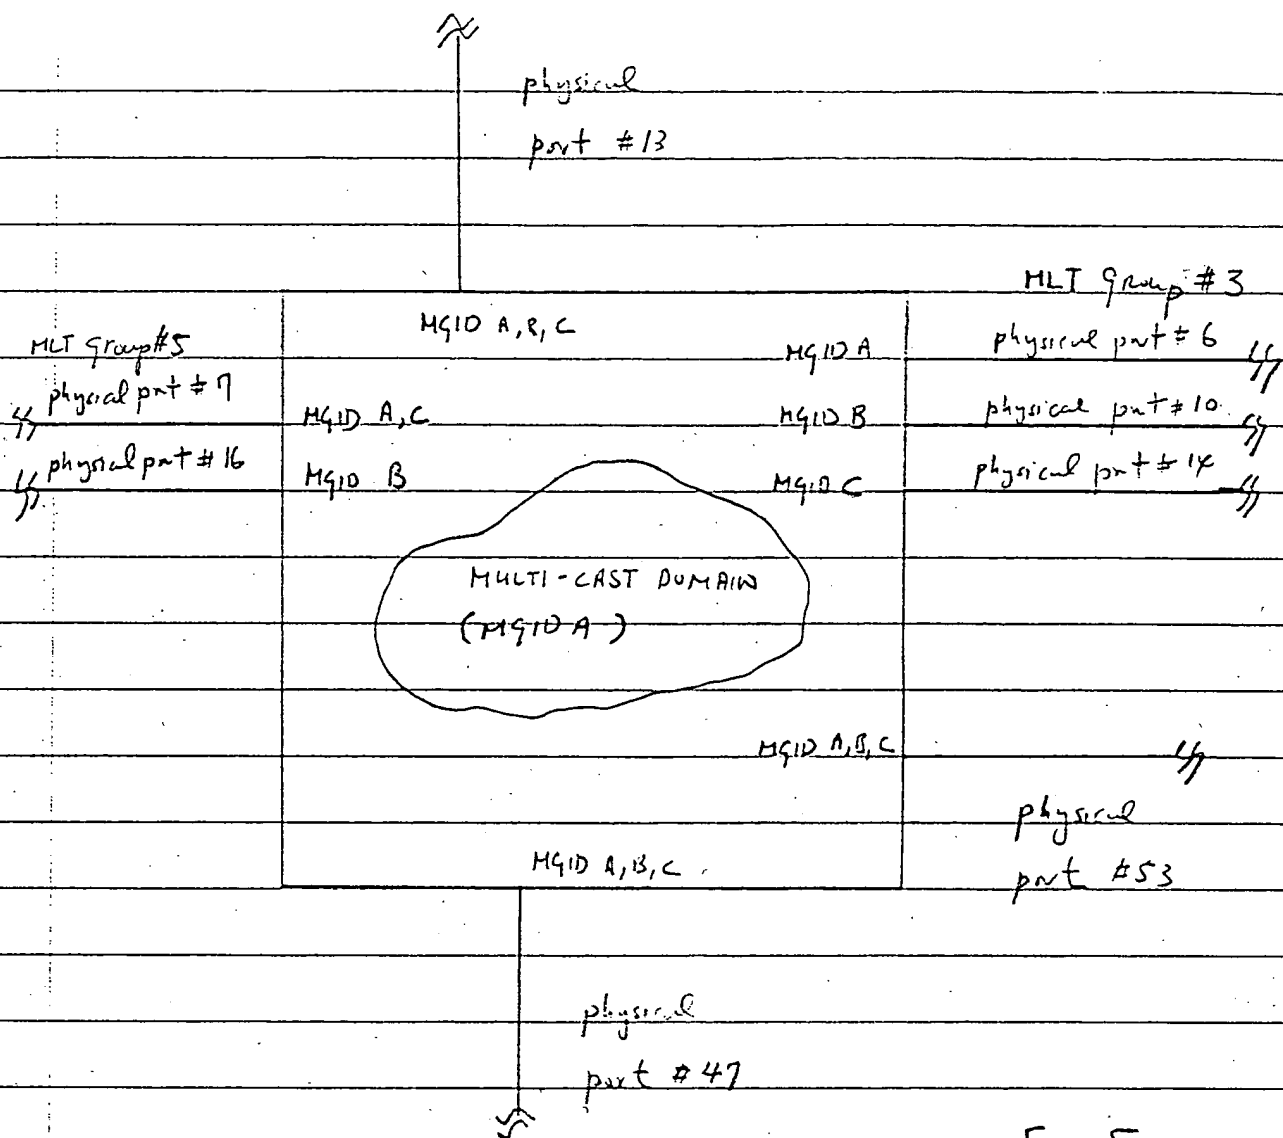 physical
port #13
MLT Group #3
MGID A, B, C
MLT Group #5
MGID A
physical port #6
physical port #7
MGID A, C
MGID B
physical port #10
physical port #16
MGID B
MGID C
physical port #14
MULTI-CAST DOMAIN
(MGID A)
MGID A, B, C
physical
port #53
MGID A, B, C
physical
port #47